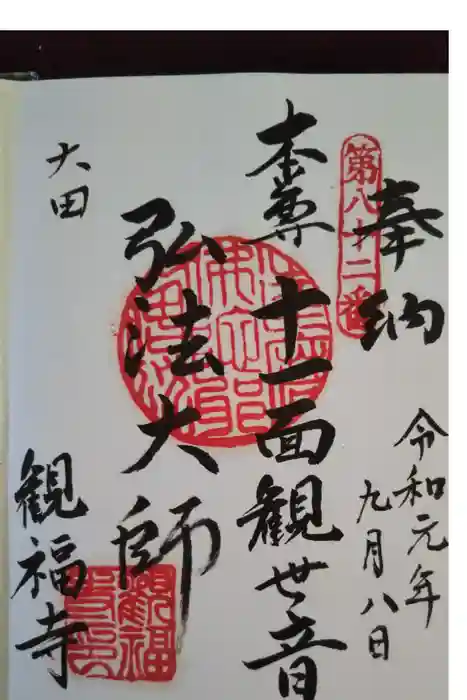 奉納
第八十二番
令和元年
九月八日
本尊十一面観世音
弘法大師
大田
観福寺
観福寺印